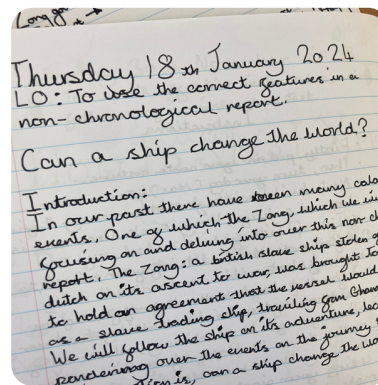 Long
Thursday 18th January 2024
LO: To use the correct features in a
non-chronological report.
Can a ship change the world?
Introduction:
In our past there have been many
events. One of which the Zong, which we
focusing on and delving into over this non
report. The Zong: a british slave ship stolen
dutch on its ascent to war, was brought
to hold an agreement that the vessel would
as a slave trading ship, traviling from
We will follow the ship on its adventure,
pondering over the events on the journey
is, can a ship change the